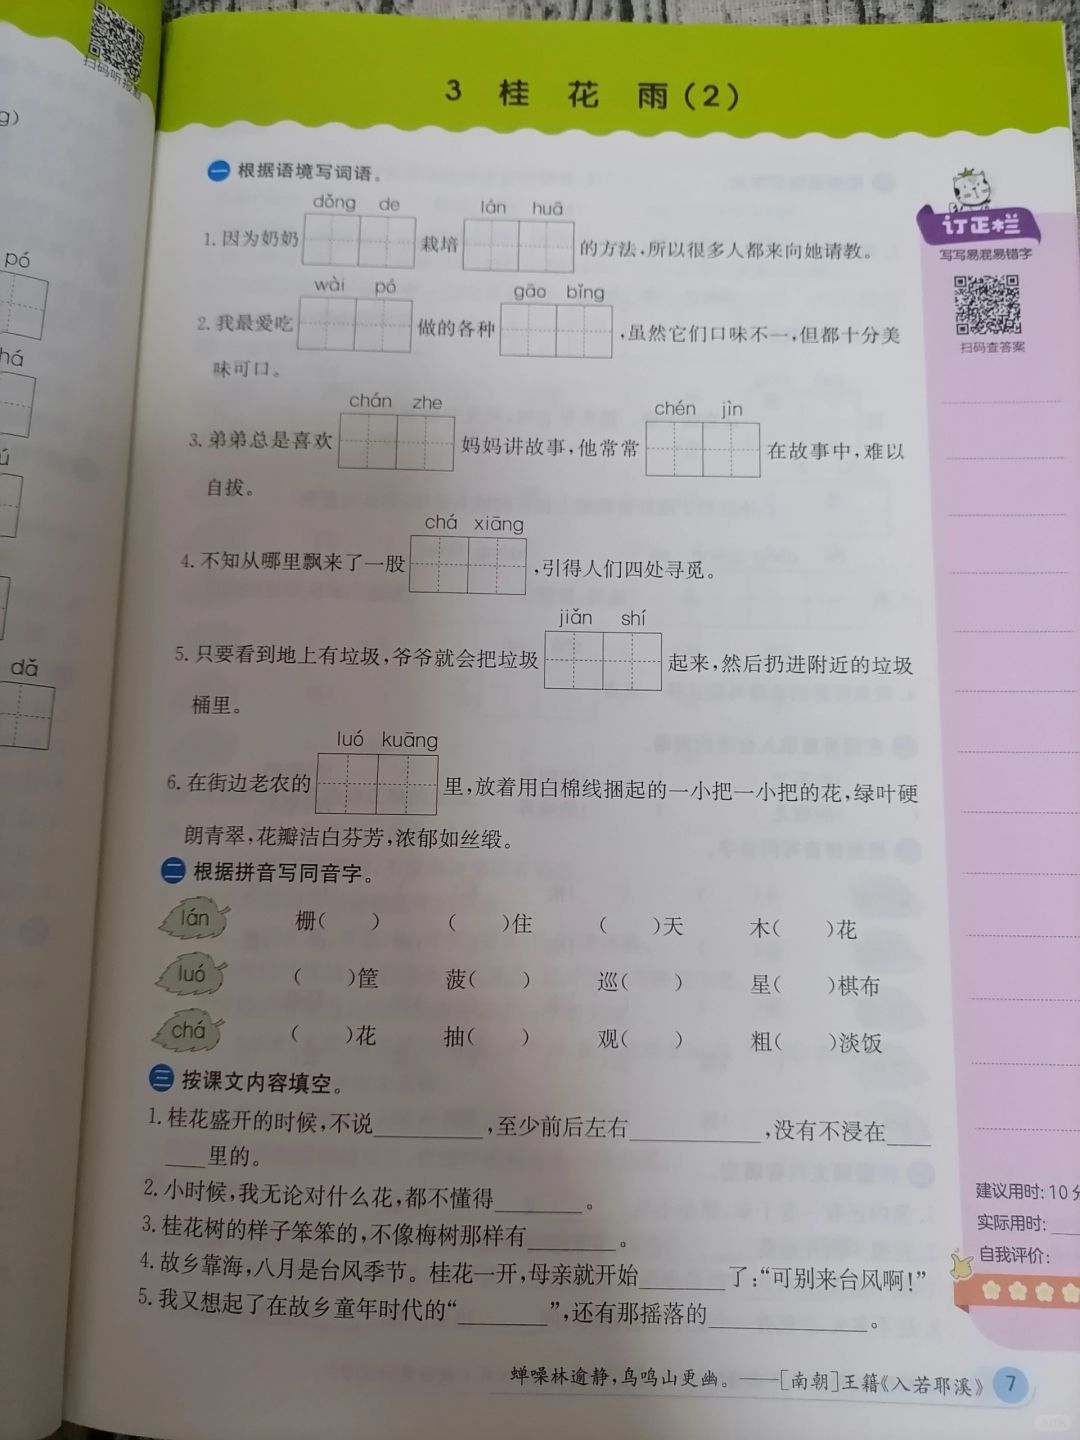 扫码听报题
g)
pó
há
ú
dǎ
3 桂 花 雨(2)
一 根据语境写词语。
dǒng de lán huā
1. 因为奶奶 栽培 的方法,所以很多人都来向她请教。
wài pó gāo bǐng
2. 我最爱吃 做的各种 ,虽然它们口味不一,但都十分美
味可口。
chán zhe chén jìn
3. 弟弟总是喜欢 妈妈讲故事,他常常 在故事中,难以
自拔。
chá xiāng
4. 不知从哪里飘来了一股 ,引得人们四处寻觅。
jiǎn shí
5. 只要看到地上有垃圾,爷爷就会把垃圾 起来,然后扔进附近的垃圾
桶里。
luó kuāng
6. 在街边老农的 里,放着用白棉线捆起的一小把一小把的花,绿叶硬
朗青翠,花瓣洁白芬芳,浓郁如丝缎。
二 根据拼音写同音字。
lán 栅( ) ( )住 ( )天 木( )花
luó ( )筐 菠( ) 巡( ) 星( )棋布
chá ( )花 抽( ) 观( ) 粗( )淡饭
三 按课文内容填空。
1. 桂花盛开的时候,不说__________,至少前后左右____________,没有不浸在____
____里的。
2. 小时候,我无论对什么花,都不懂得________。
3. 桂花树的样子笨笨的,不像梅树那样有________。
4. 故乡靠海,八月是台风季节。桂花一开,母亲就开始________了:“可别来台风啊!”
5. 我又想起了在故乡童年时代的“________”,还有那摇落的______________。
蝉噪林逾静,鸟鸣山更幽。——[南朝]王籍《入若耶溪》 7
订正栏
写写易混易错字
扫码查答案
建议用时: 10分
实际用时:
自我评价: